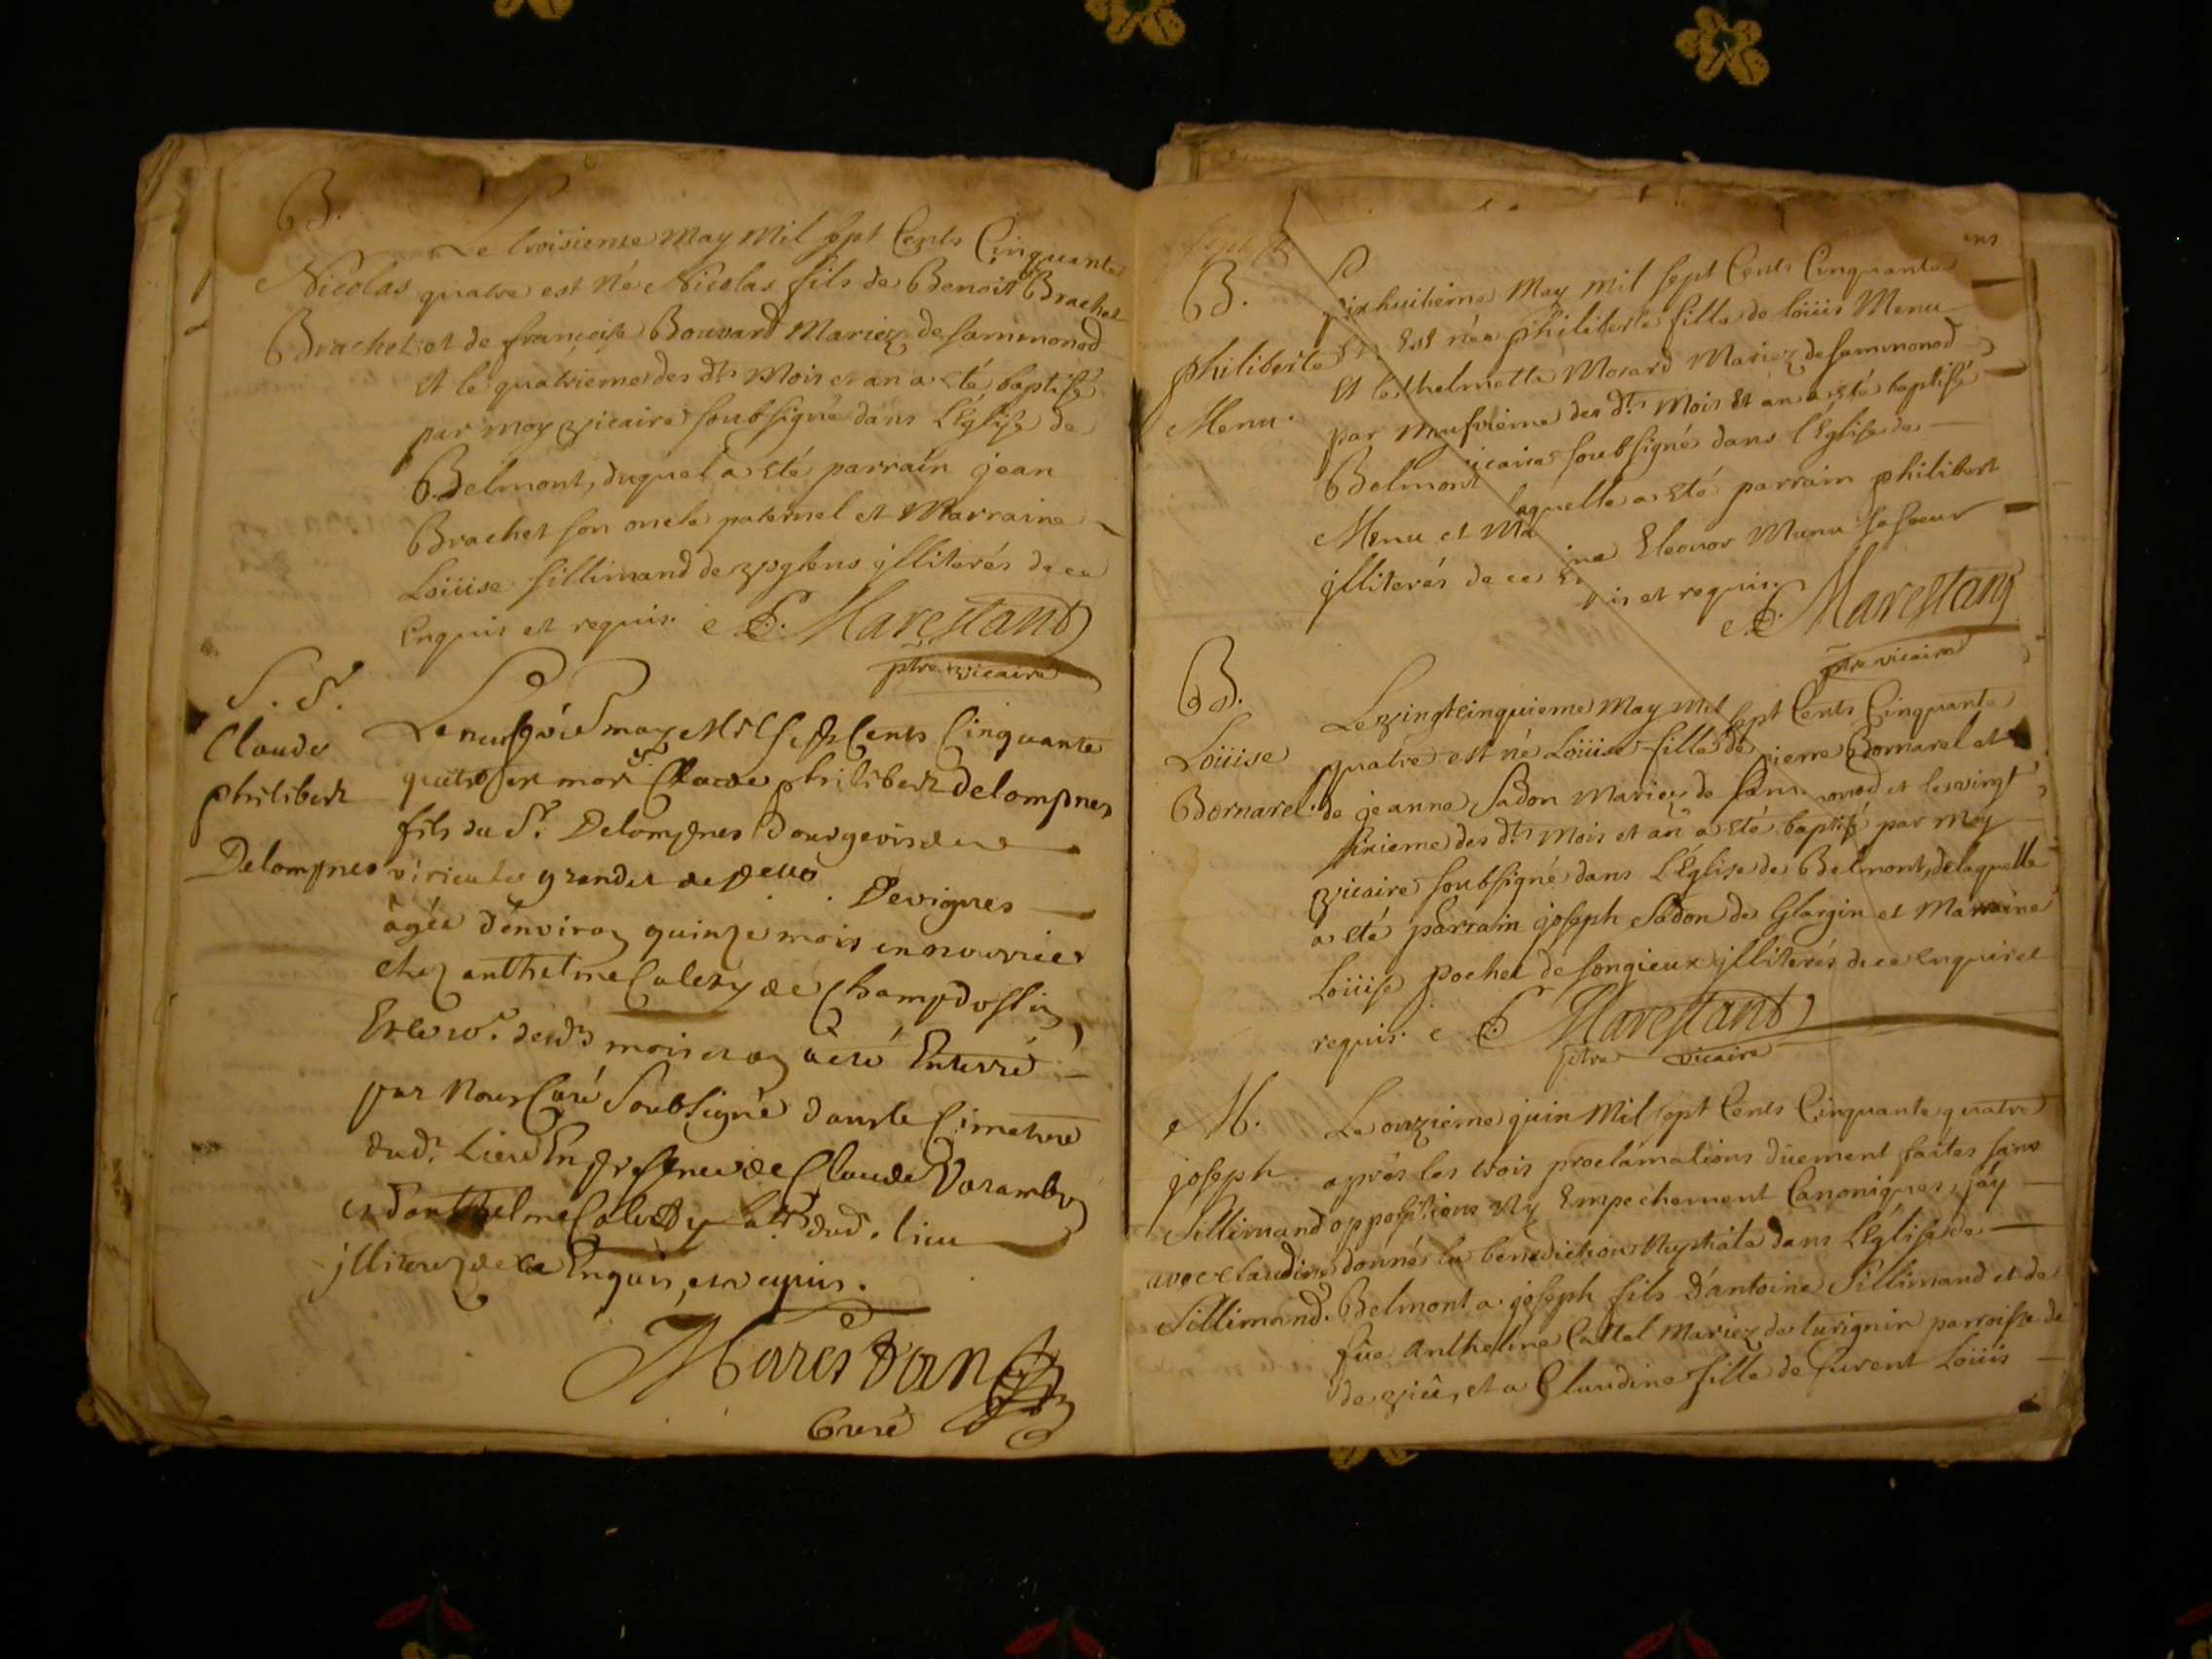 B.
Le troisieme May Mil sept Cents Cinquante
Nicolas quatre est né Nicolas fils de Benoit Brachet
Brachet et de françoise Bouvard Mariez de sammonod
et le quatrieme des dts Mois et an a eté baptisé
par moy vicaire soubsigné dans L'église de
Belmont, duquel a eté parrain jean
Brachet son oncle paternel et Marraine
Loüise sillimand de illiterés de ce
Enquis et requis. E. Marestand
ptre vicaire
S. S.
Le may Mil sept Cents Cinquante
Claude
philibert quatre est mort Claude philibert delompnes
fils du Sr. Delompnes Bourgeois de
Delompnes virieu le grand et de Devignes
agée d'environ quinze mois en nourrice
chez anthelme Caletty de Champdossin
Et le 10e desds mois et an a eté Enterré
par Nous Curé Soubsigné dans le Cimetiere
dud. Lieu En presence de Claude Varambon
et d'anthelme Caletty dud. lieu
jlliterez de ce Enquis, et requis.
Marestan
Curé
B. Dixhuitieme May mil sept Cents Cinquante
philiberte Est née philiberte fille de loüis Menu
Et Anthelmette Mosard Mariez de sammonod
Menu. par neufvieme des dts Mois Et an a eté baptisé
vicaire soubsigné dans l'Eglise de
Belmont laquelle a eté parrain philibert
Menu et Ma ine Eleonor Menu sa soeur
jlliterés de ce En is et requis.
E. Marestang
ptre vicaire
B.
Le vingtcinquieme May Mil sept Cents Cinquante
Loüise quatre est né Loüise fille de pierre Bornarel et
Bornarel. de jeanne Sadon Mariez de sammonod et le vingt
sixieme des dts Mois et an a eté baptisé par Moy
vicaire soubsigné dans L'Eglise de Belmont, de laquelle
a eté parrain joseph Sadon de Glargin et Marraine
Loüise pochet de songieux jlliterés de ce Enquis et
requis. E Marestand
ptre vicaire
M. Le onzieme juin Mil sept Cents Cinquante quatre
joseph aprés les trois proclamations düement faites sans
Sillimand oppositions Ny Empechement Canoniques, j'ay
avec claudine donné la benediction Nuptiale dans L'Eglise de
Sillimand. Belmont a joseph fils D'antoine Sillimand et de
füe Anthelme Cattel Mariez de lurignin parroisse de
de et a Claudine fille de furent Loüis